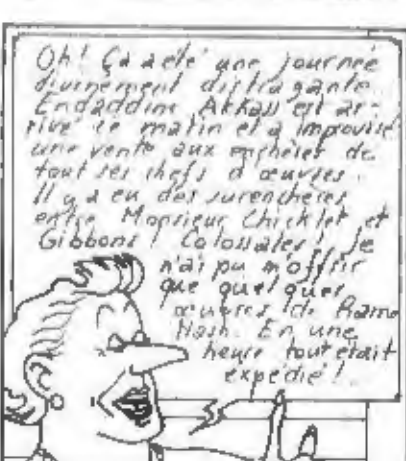 Oh! Ça a été une journée
divinement distragante.
Endaddine Akkass est ar-
rivé ce matin et a improvisé
une vente aux enchères de
tout ses chefs d'œuvres.
Il y a eu des surenchères
entre Monsieur Chicklet et
Gibbons! Colossales! Je
n'ai pu m'offrir
que quelques
œuvres de Ramo
Nash. En une
heure tout était
expédié!